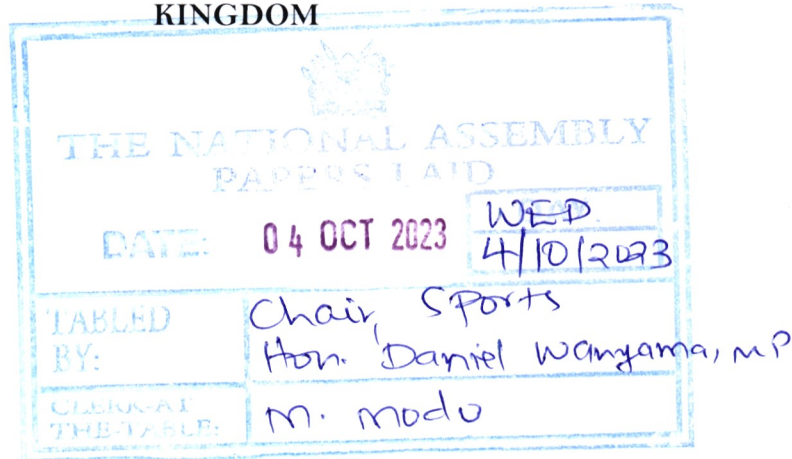 KINGDOM
THE NATIONAL ASSEMBLY
PAPERS LAID
DATE: 04 OCT 2023 WED
4/10/2023
TABLED BY: Chair, Sports
Hon. Daniel Wanyama, MP
CLERK-AT THE-TABLE: M. Modo